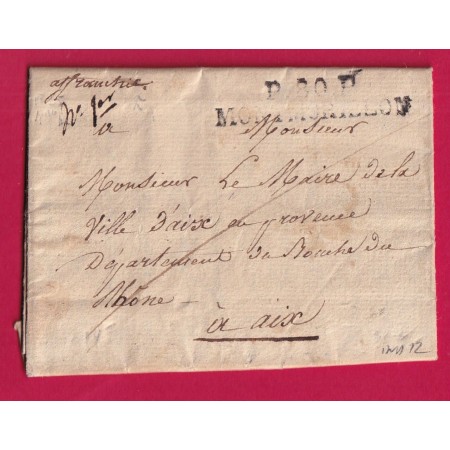 affranchie.
P. 80. P.
MONTMORILLON
N.° 1er
a Monsieur
Monsieur Le Maire de la
Ville d'aix en provence
Département du Bouche du
Rhône -
à aix